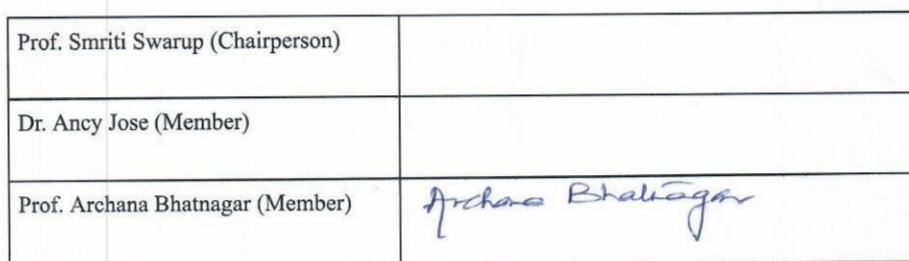 Prof. Smriti Swarup (Chairperson)
Dr. Ancy Jose (Member)
Prof. Archana Bhatnagar (Member) Archana Bhatnagar